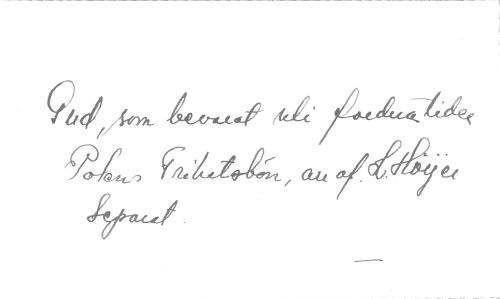 Gud, som bevarat uti fordna tider
Polens Frihetsbön, arr af. L. Höijer
Separat.